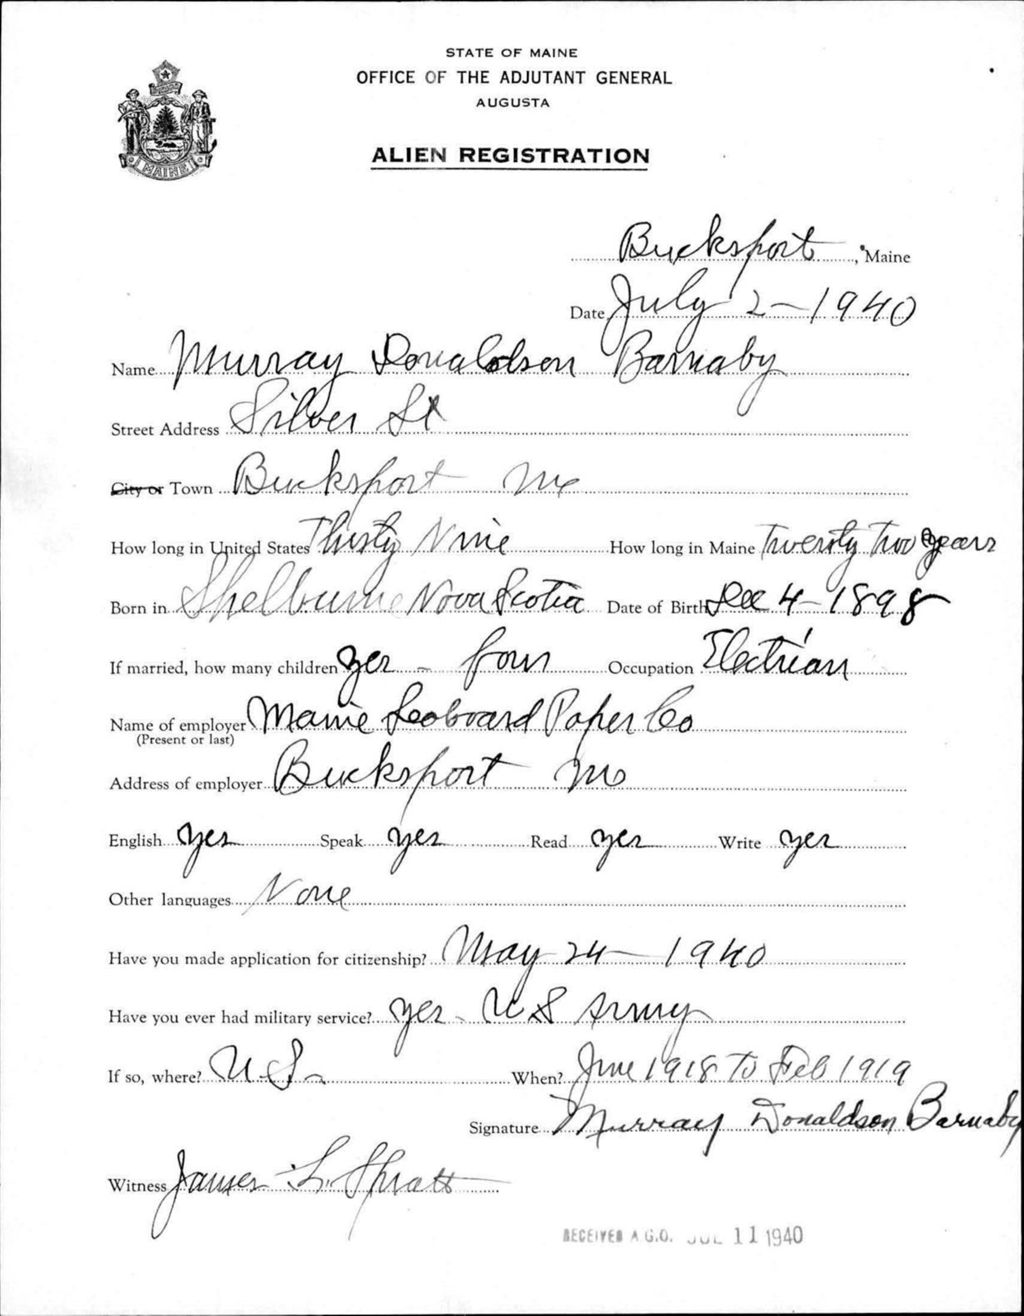 STATE OF MAINE
OFFICE OF THE ADJUTANT GENERAL
AUGUSTA
ALIEN REGISTRATION
MAINE
Bucksport, Maine
Date July 2-1940
Name Murray Donaldson Barnaby
Street Address Silver St
City or Town Bucksport Me
How long in United States Thirty Nine How long in Maine Twenty Two years
Born in Shelburne Nova Scotia Date of Birth Dec 4-1898
If married, how many children yes - four Occupation Electrian
Name of employer Maine Seaboard Paper Co
(Present or last)
Address of employer Bucksport Me
English yes Speak yes Read yes Write yes
Other languages None
Have you made application for citizenship? May 24-1940
Have you ever had military service? yes - U S Army
If so, where? U.S. When? June 1918 To Feb 1919
Signature Murray Donaldson Barnaby
Witness James L. Spratt
RECEIVED A.G.O. JUL 11 1940